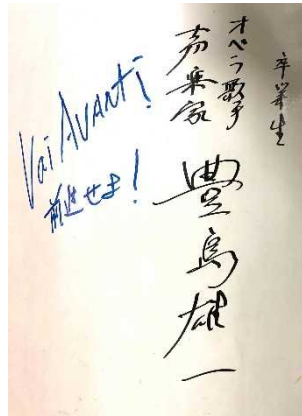 卒業生
オペラ歌手
声楽家
豊島雄一
Vai AVANTi!
前進せよ!